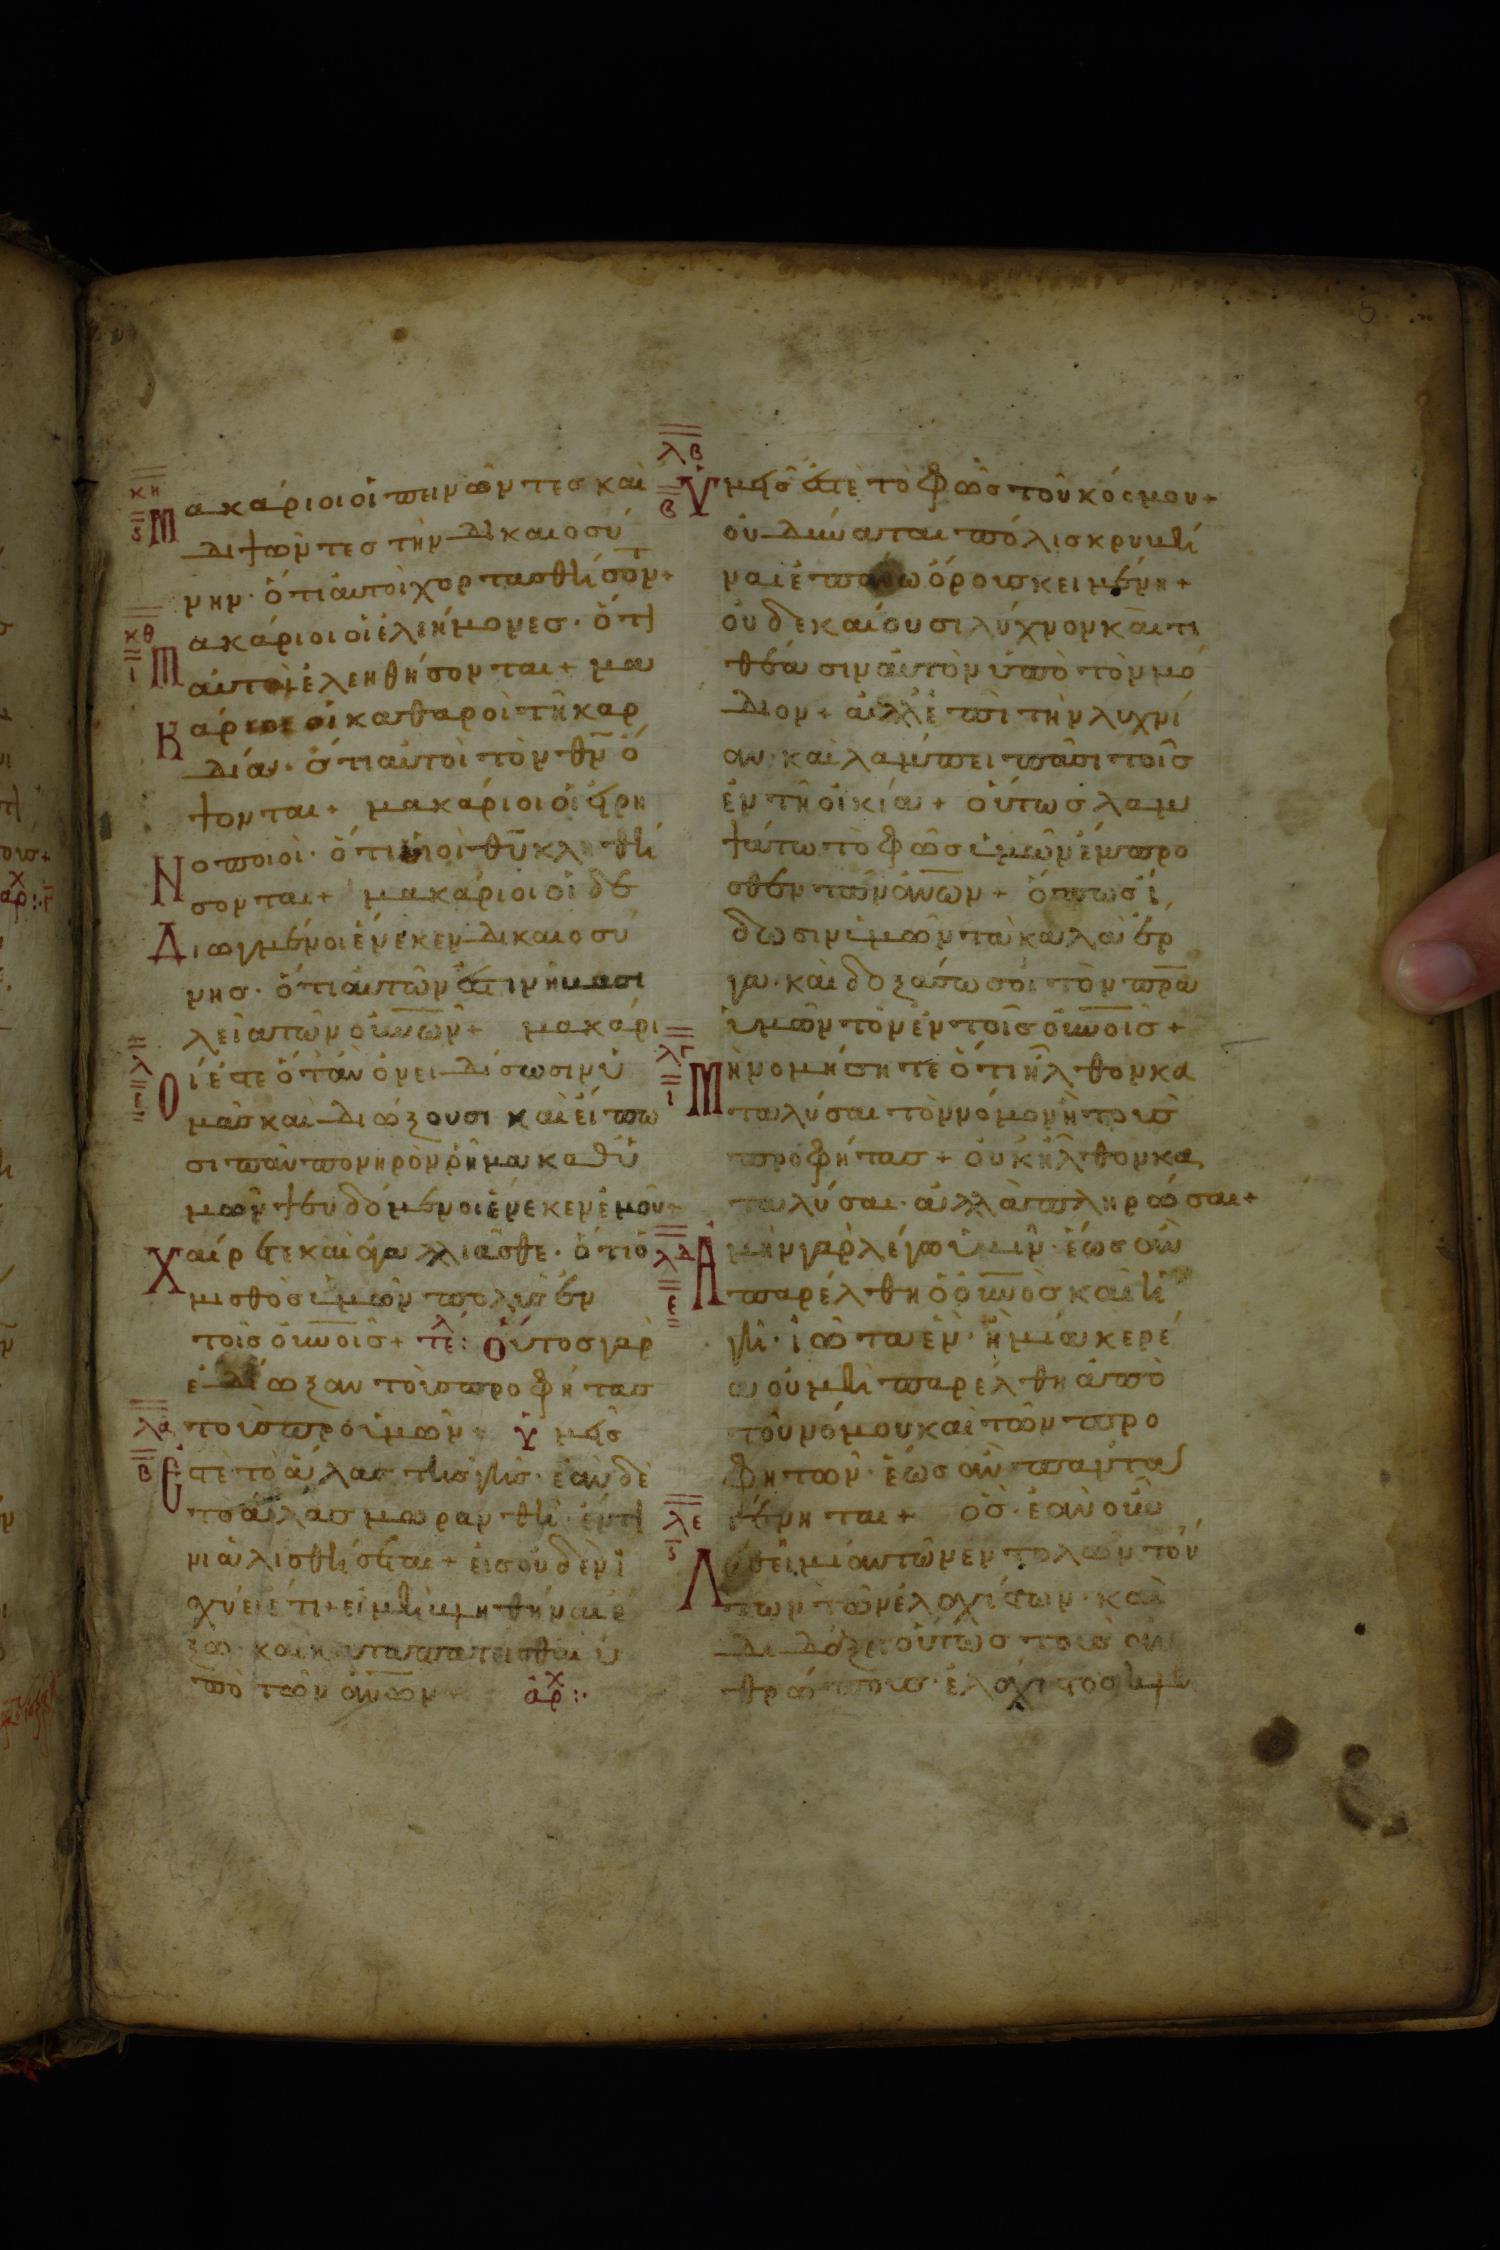 κη
ϛ
Μακάριοι οἱ πεινῶντες καὶ
διψῶντες τὴν δικαιοσύ
νην· ὅτι αὐτοὶ χορτασθήσοντ+
κθ
ι
Μακάριοι οἱ ἐλεήμονες· ὅτι
αὐτοὶ ἐλεηθήσονται+ μα
Κάριοι οἱ καθαροὶ τῆ καρ
δία· ὅτι αὐτοὶ τὸν θν ὄ
ψονται+ μακάριοι οἱ εἰρη
Νοποιοὶ· ὅτι υἱοὶ θυ κληθή
σονται+ μακάριοι οἱ δε
Διωγμένοι ἕνεκεν δικαιοσύ
νης· ὅτι αὐτῶν ἐστιν ἡ βασι
λεία τῶν οὐνῶν+ μακάρι
λ
ι
Οί ἐστε ὅταν ὀνειδίσωσιν ὑ
μᾶς καὶ διώξουσι καὶ εἴπω
σι πᾶν πονηρὸν ῥῆμα καθ ὑ
μῶν ψευδόμενοι ἕνεκεν ἐμοῦ+
Χαίρετε καὶ ἀγαλλιᾶσθε· ὅτι ὁ
μισθὸς ὑμῶν πολὺς ἐν
τοῖς οὐνοις+ τελ: Οὕτος γαρ
ἐδίωξαν τοὺς προφήτας
λα
β
τοὺς πρὸ ὑμῶν+ Ὑμεῖς
Ἐστὲ τὸ ἅλας τῆς γῆς· ἐαν δὲ
τὸ ἅλας μωρανθῆ· ἐν τι
νι ἁλισθήσεται+ εἰς οὐδὲν ἰ
σχύει ἔτι+ εἰ μὴ βληθῆναι ἔ
ξω· καὶ καταπατεισθαι ὑ
πὸ τῶν ἀνων+ ἀρχ:·
λβ
β
Ὑμεῖς ἐστὲ τὸ φῶς τοῦ κόσμου+
οὐ δύναται πόλις κρυβῆ
ναι ἐπάνω ὄρους κειμένη+
οὐδε καίουσι λύχνον καὶ τι
θέασιν αὐτὸν ὑπὸ τὸν μό
διον+ ἀλλ ἐπὶ τὴν λυχνί
αν· καὶ λαμπει πᾶσι τοῖς
ἐν τῆ οἰκία+ οὕτως λαμ
ψάτω τὸ φῶς ὑμῶν ἔμπρο
σθεν τῶν ἀνων+ ὅπως ἴ
δωσιν ὑμῶν τὰ καλὰ ἔρ
γα· καὶ δοξάσωσοι τὸν πρα
ὑμῶν τὸν ἐν τοῖς οὐνοις+
λγ
ι
Μὴ νομήσητε ὅτι ἦλθον κα
ταλύσαι τὸν νόμον ἢ τοὺς
προφήτας+ οὐκ ἦλθον κα
ταλύσαι· ἀλλὰ πληρῶσαι+
λδ
ε
Ἀμὴν γὰρ λέγω ὑμῖν· ἕως ἂν
παρέλθη ὁ οὐνος καὶ ἡ
γῆ· ἰῶτα ἐν· ἢ μία κερέ
α οὐ μὴ παρέλθη ἀπὸ
τοῦ νόμου καὶ τῶν προ
φητῶν· ἕως ἂν πάντα
λε
ϛ
γένηται+ ὃς· ἐὰν οὖν
Λύσει μίαν τῶν ἐντολῶν τού
των τῶν ἐλαχίστων· καὶ
διδάξει οὕτως τοὺς ἀν
θρώπους· ἐλάχιστος